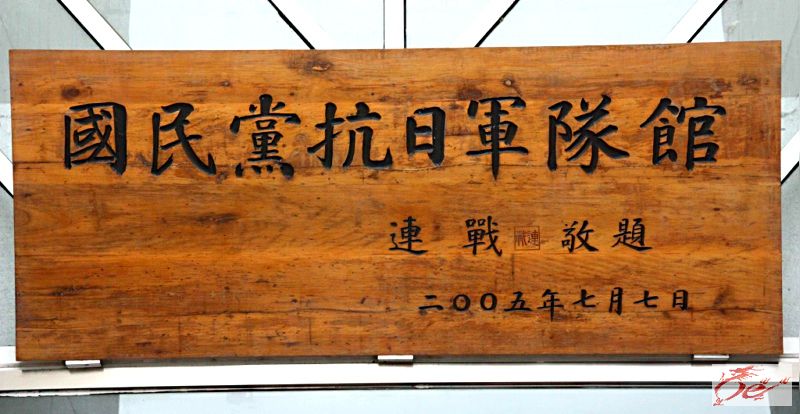 國民黨抗日軍隊館
連戰 敬題
二〇〇五年七月七日